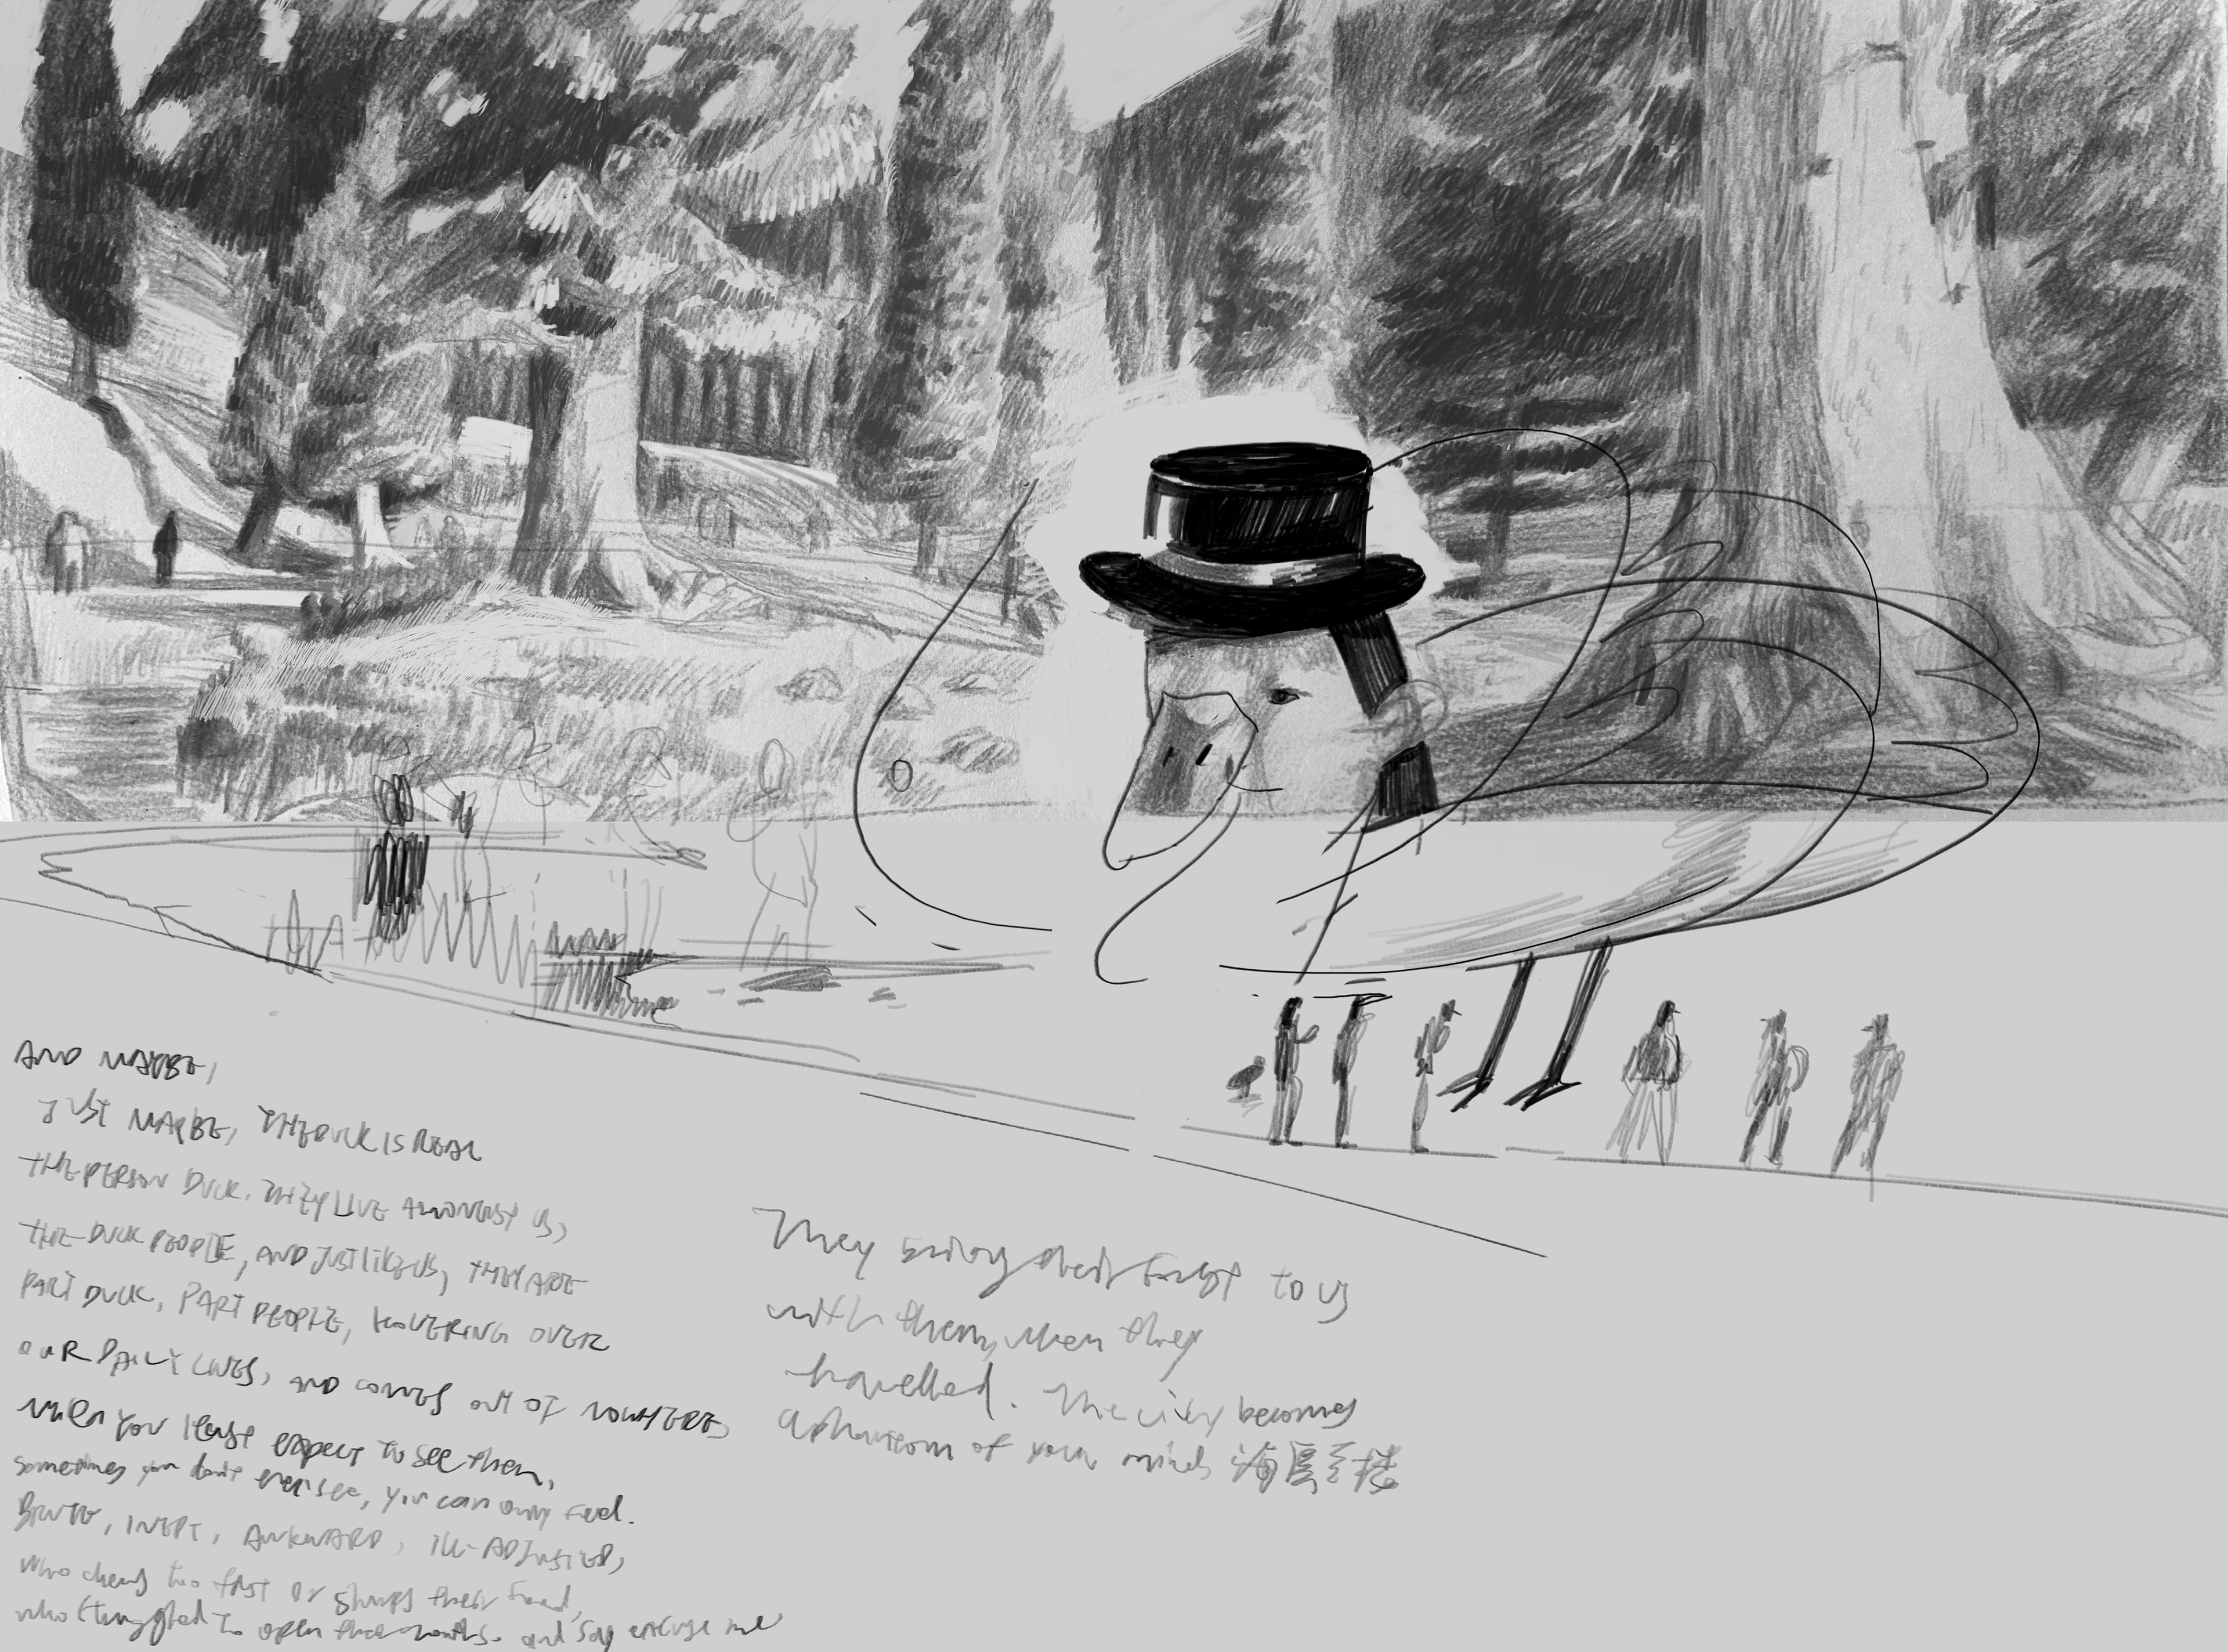 AND MAYBE,
JUST MAYBE, THE DUCK IS REAL
THE PERSON DUCK. THEY LIVE AMONGST US,
THE DUCK PEOPLE, AND JUST LIKE US, THEY ARE
PART DUCK, PART PEOPLE, HOVERING OVER
OUR DAILY LIVES, AND COMES OUT OF NOWHERE,
when you least expect to see them,
sometimes you don't even see, you can only feel.
BRUTE, INEPT, AWKWARD, ILL-ADJUSTED,
who chews too fast or slurps their food,
who struggled to open their mouths. and say excuse me
They bring their to us
with them, when they
travelled. The city becomes
a phantom of your mind, 海市蜃楼